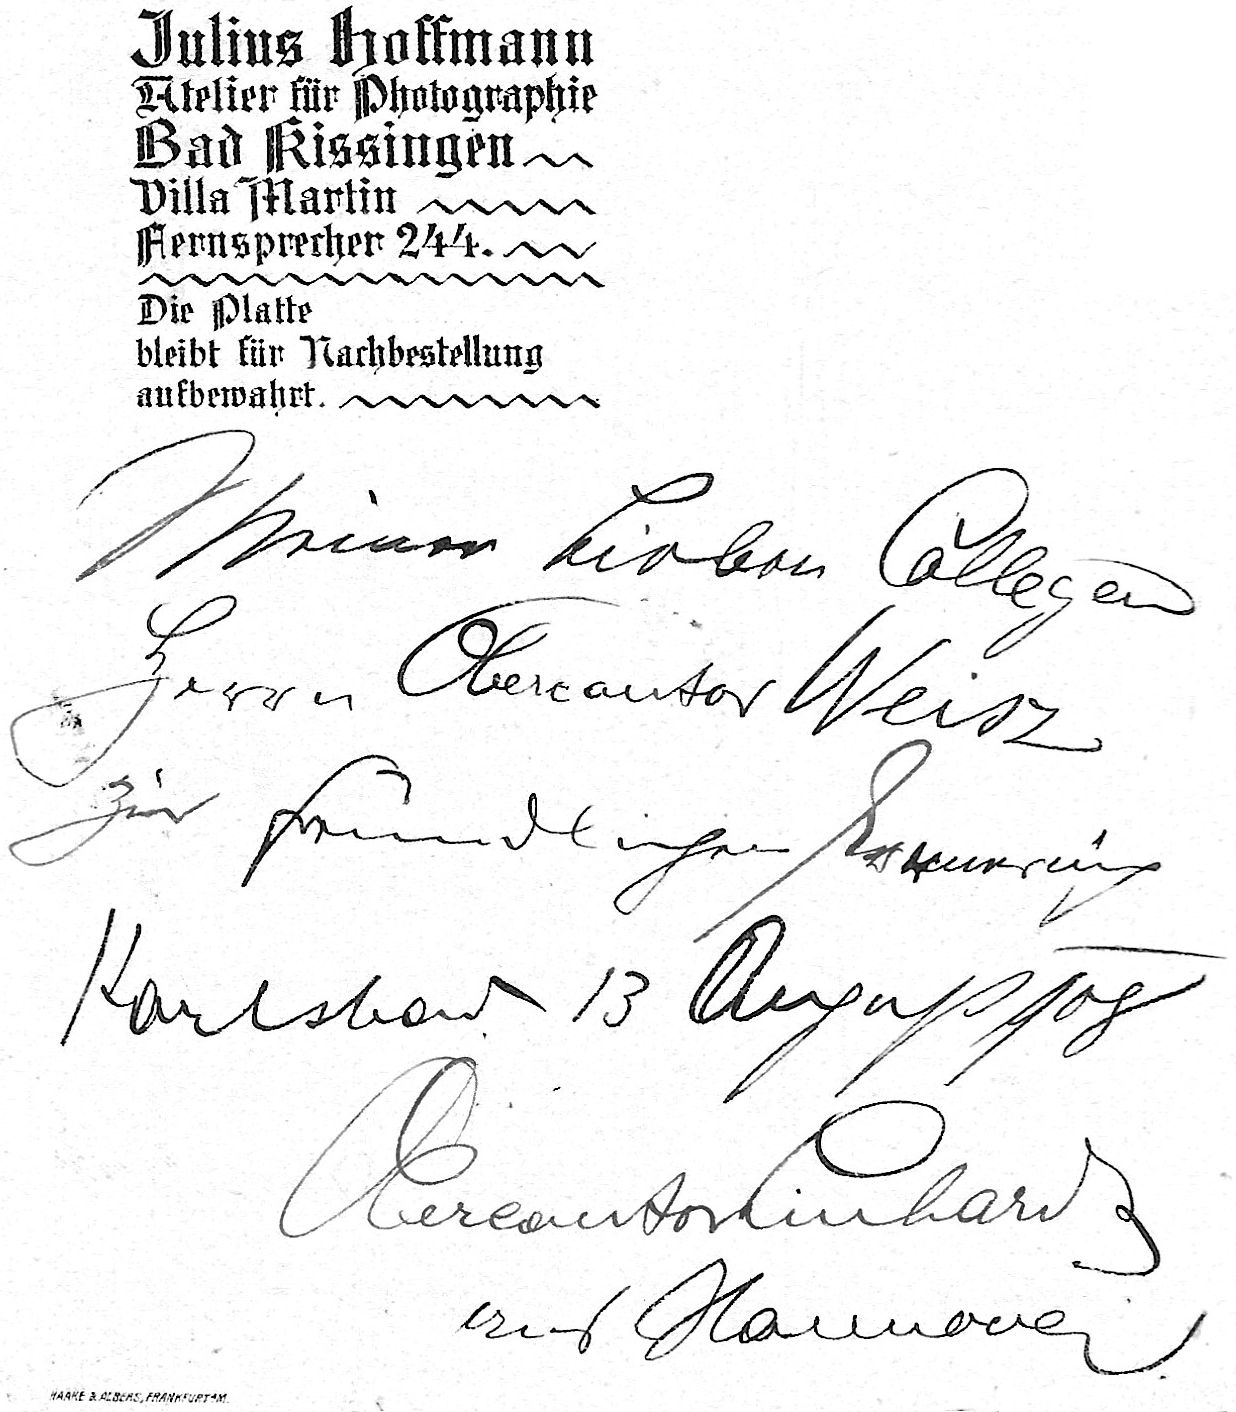 Julius Hoffmann
Atelier für Photographie
Bad Kissingen
Villa Martin
Fernsprecher 244.
Die Platte
bleibt für Nachbestellung
aufbewahrt.
Meinem lieben Collegen
Herrn Obercantor Weisz
zur freundlichen Erinnerung
Karlsbad 13 August 908
Obercantor
aus Hannover
HAAKE & ALBERS, FRANKFURT a/M.